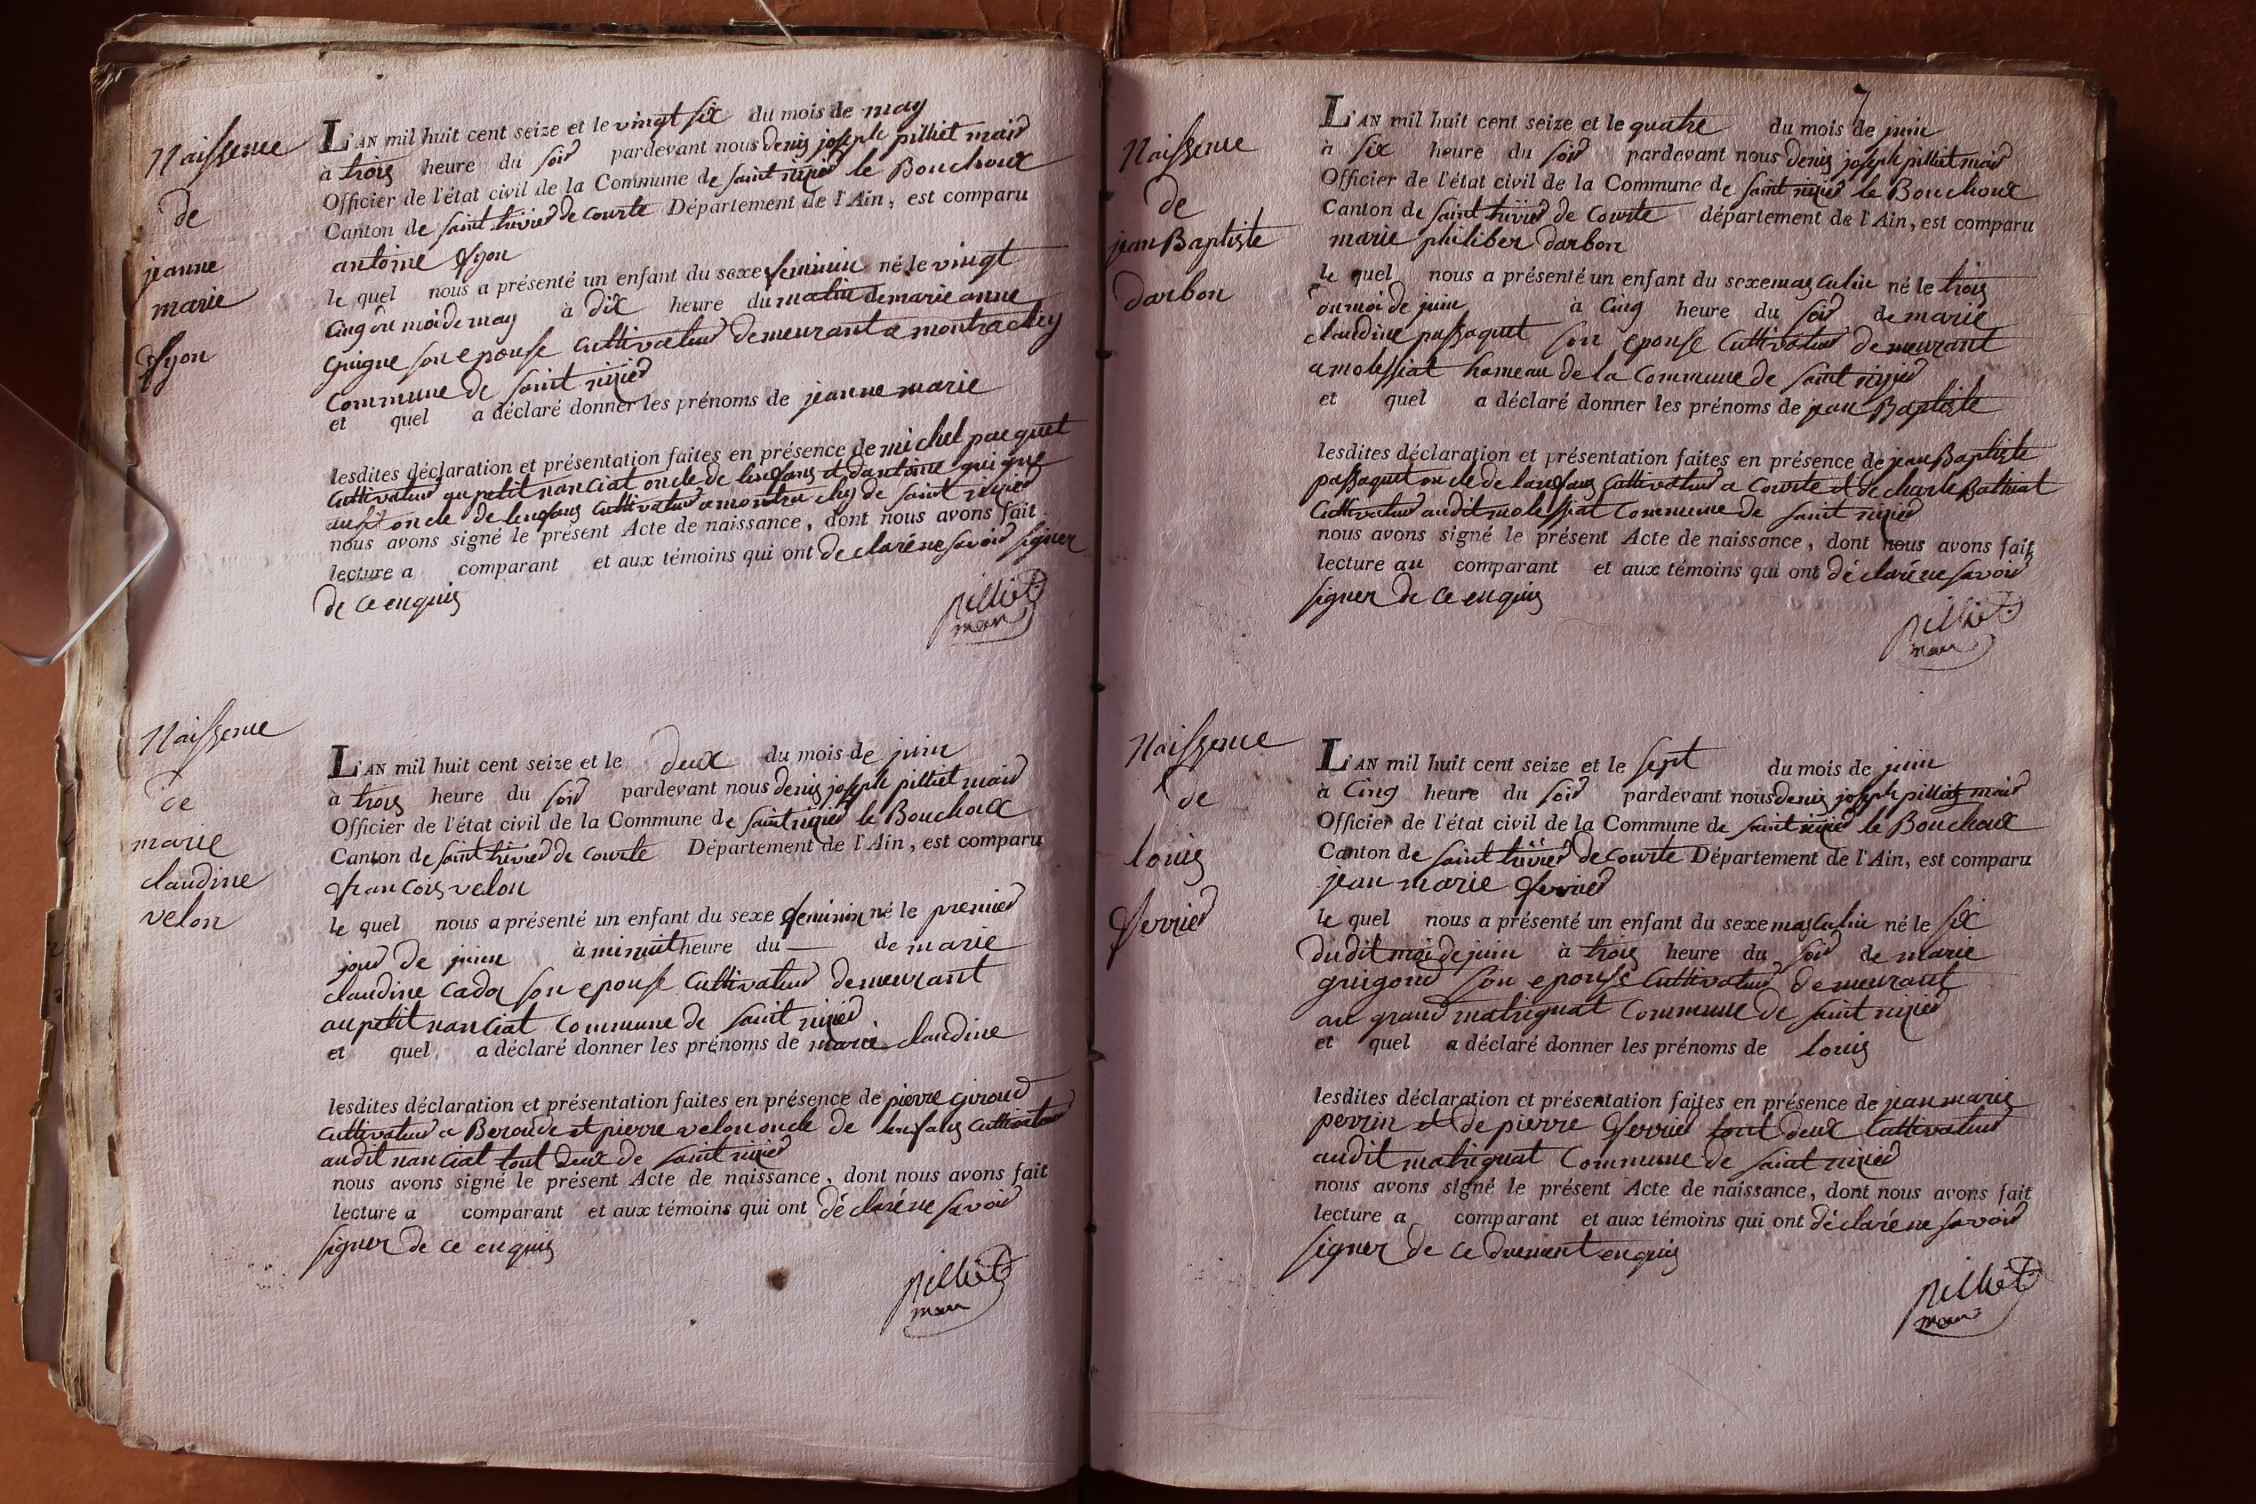 Naissence
de
jeanne
marie
Lyon
L'AN mil huit cent seize et le vingt six du mois de may
à trois heure du soir pardevant nous denis joseph pilliet mair
Officier de l'état civil de la Commune de saint nizier le Bouchoux
Canton de saint trivier de Courte Département de l'Ain, est comparu
antoine Lyon
le quel nous a présenté un enfant du sexe feminin né le vingt
cinq du moi de may à dix heure du matin de marie anne
guigue son epouse cultivateur demeurant a montrachey
commune de saint nizier
et quel a déclaré donner les prénoms de jeanne marie
lesdites déclaration et présentation faites en présence de michel pacquet
cultivateur au petit nanciat oncle de lenfans et dantoine guigue
aussit oncle de lenfans cultivateur a montrachey de saint nizier
nous avons signé le présent Acte de naissance, dont nous avons fait
lecture a comparant et aux témoins qui ont declaré ne savoir signer
de ce enquis
pilliet
mair
Naissence
de
marie
claudine
velon
L'AN mil huit cent seize et le deux du mois de juin
à trois heure du soir pardevant nous denis joseph pilliet mair
Officier de l'état civil de la Commune de saint nizier le Bouchoux
Canton de saint trivier de Courte Département de l'Ain, est comparu
francois velon
le quel nous a présenté un enfant du sexe feminin né le premier
jour de juin à minuit heure du de marie
claudine cadoz son epouse cultivateur demeurant
au petit nanciat commune de saint nizier
et quel a déclaré donner les prénoms de marie claudine
lesdites déclaration et présentation faites en présence de pierre giroud
cultivateur a Beroude et pierre velon oncle de lenfans cultivateur
audit nanciat tout deux de saint nizier
nous avons signé le présent Acte de naissance, dont nous avons fait
lecture a comparant et aux témoins qui ont déclaré ne savoir
signer de ce enquis
pilliet
mair
7
Naissence
de
jean Baptiste
darbon
L'AN mil huit cent seize et le quatre du mois de juin
à six heure du soir pardevant nous denis joseph pilliet mair
Officier de l'état civil de la Commune de saint nizier le Bouchoux
Canton de saint trivier de Courte département de l'Ain, est comparu
marie philiber darbon
le quel nous a présenté un enfant du sexe masculin né le trois
du moi de juin à cinq heure du soir de marie
claudine passaquet son epouse cultivateur demeurant
a molessiat hameau de la commune de saint nizier
et quel a déclaré donner les prénoms de jean Baptiste
lesdites déclaration et présentation faites en présence de jean Baptiste
passaquet oncle de lanfans cultivateur a courte et de charle Bathiat
cultivateur audit molessiat commune de saint nizier
nous avons signé le présent Acte de naissance, dont nous avons fait
lecture au comparant et aux témoins qui ont déclaré ne savoir
signer de ce enquis
pilliet
mair
Naissence
de
louis
ferrier
L'AN mil huit cent seize et le sept du mois de juin
à cinq heure du soir pardevant nous denis joseph pilliet mair
Officier de l'état civil de la Commune de saint nizier le Bouchoux
Canton de saint trivier de Courte Département de l'Ain, est comparu
jean marie ferrier
le quel nous a présenté un enfant du sexe masculin né le six
dudit moi de juin à trois heure du soir de marie
guigond son epouse cultivateur demeurant
au grand matrignat commune de saint nizier
et quel a déclaré donner les prénoms de louis
lesdites déclaration et présentation faites en présence de jean marie
perrin et de pierre ferrier tout deux cultivateur
audit matrignat commune de saint nizier
nous avons signé le présent Acte de naissance, dont nous avons fait
lecture a comparant et aux témoins qui ont déclaré ne savoir
signer de ce duement enquis
pilliet
mair